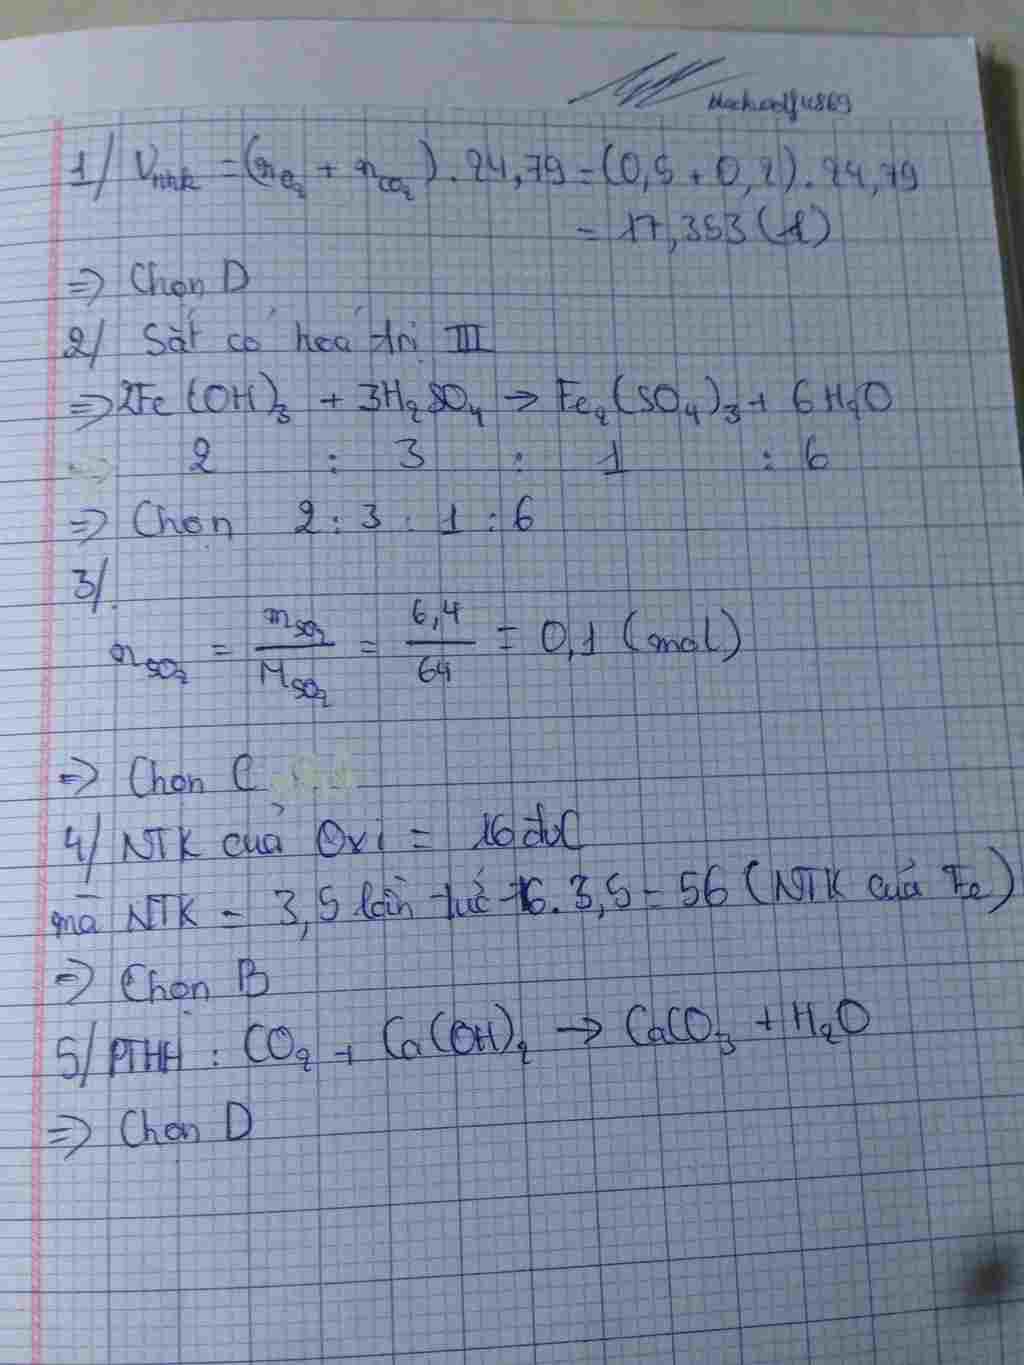 1/ Vhhk = (nO₂ + nCO₂).24,79 = (0,5 + 0,2).24,79
= 17,353 (l)
=> Chọn D
2/ Sắt có hoá trị III
=> 2Fe(OH)₃ + 3H₂SO₄ → Fe₂(SO₄)₃ + 6H₂O
=> 2 : 3 : 1 : 6
=> Chọn 2 : 3 : 1 : 6
3/.
nSO₂ = mSO₂/MSO₂ = 6,4/64 = 0,1 (mol)
=> Chọn C
4/ NTK của Oxi = 16 đvC
mà NTK = 3,5 lần tức 16.3,5 = 56 (NTK của Fe)
=> Chọn B
5/ PTHH : CO₂ + Ca(OH)₂ → CaCO₃ + H₂O
=> Chọn D